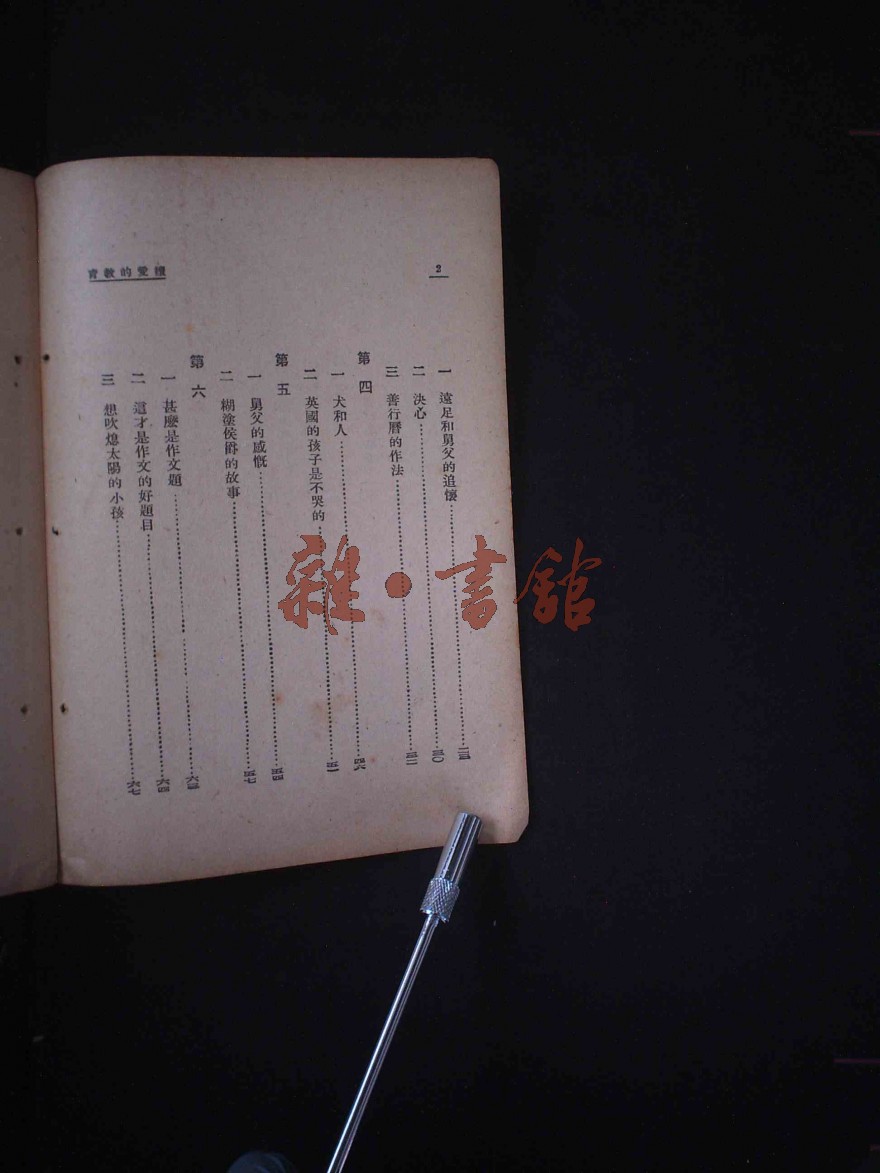 續愛的教育
2
一 遠足和舅父的追懷
二 決心 三〇
三 善行曆的作法
第四
一 犬和人 四六
二 英國的孩子是不哭的 五一
第五
一 舅父的感慨 五四
二 糊塗侯爵的故事 五七
第六
一 甚麼是作文題
二 這才是作文的好題目 六四
三 想吹熄太陽的小孩 六七
雜·書館